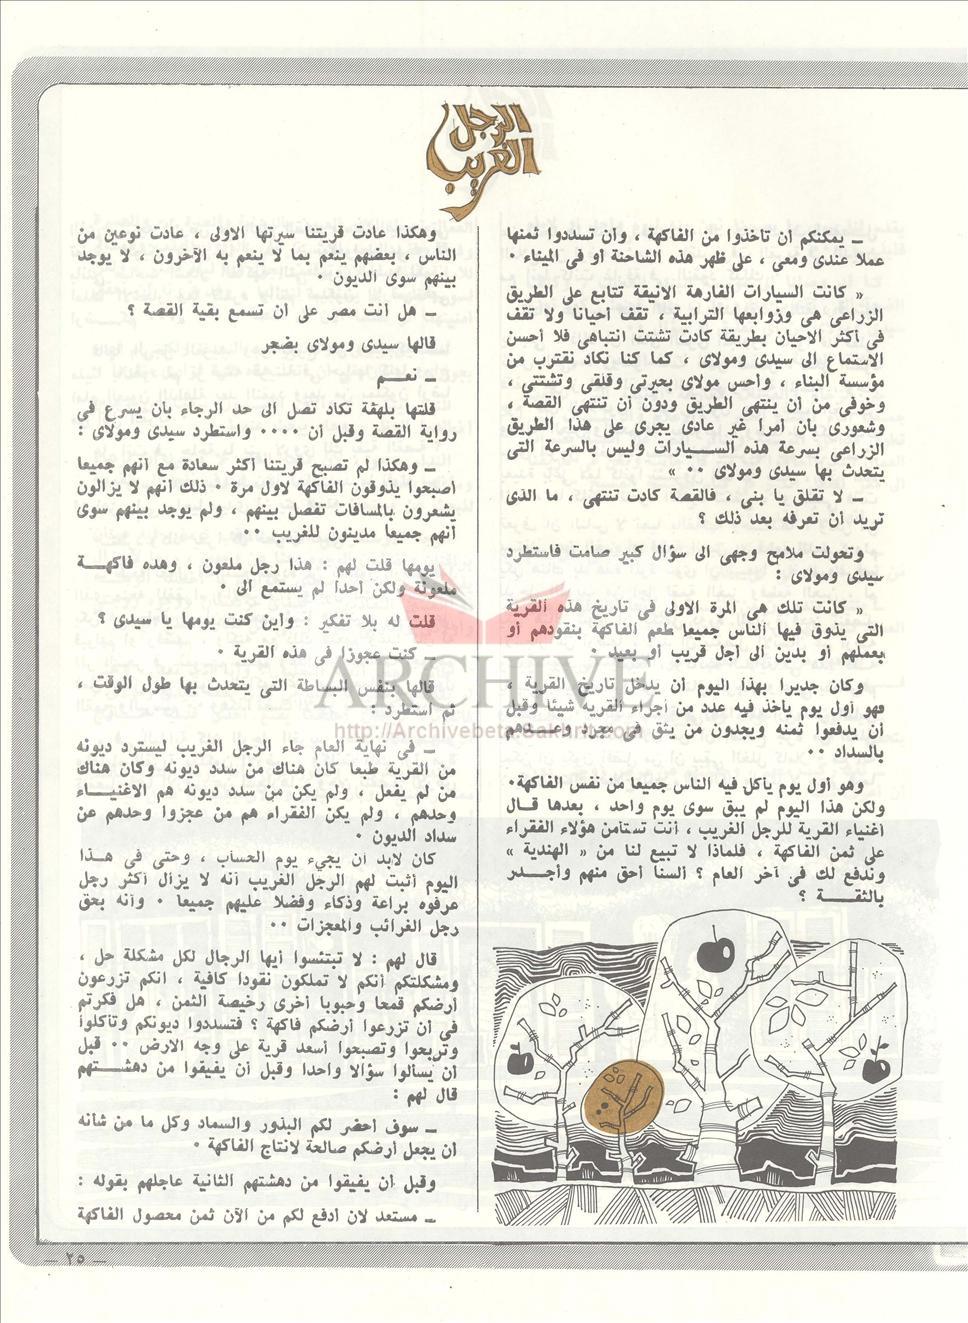 الرجل
الغريب
ـ يمكنكم أن تأخذوا من الفاكهة ، وأن تسددوا ثمنها
عملا عندى ومعى ، على ظهر هذه الشاحنة أو فى الميناء ٠
« كانت السيارات الفارهة الانيقة تتابع على الطريق
الزراعى هى وزوابعها الترابية ، تقف أحيانا ولا تقف
فى أكثر الاحيان بطريقة كادت تشتت انتباهى فلا أحسن
الاستماع الى سيدى ومولاى ، كما كنا نكاد نقترب من
مؤسسة البناء ، وأحس مولاى بحيرتى وقلقى وتشتتى ،
وخوفى من أن ينتهى الطريق ودون أن تنتهى القصة ،
وشعورى بأن أمرا غير عادى يجرى على هذا الطريق
الزراعى بسرعة هذه الســـيارات وليس بالسرعة التى
يتحدث بها سيدى ومولاى ٠٠ »
ـ لا تقلق يا بنى ، فالقصة كادت تنتهى ، ما الذى
تريد أن تعرفه بعد ذلك ؟
وتحولت ملامح وجهى الى سؤال كبير صامت فاستطرد
سيدى ومولاى :
« كانت تلك هى المرة الاولى فى تاريخ هذه القرية
التى يذوق فيها الناس جميعا طعم الفاكهة بنقودهم أو
بعملهم أو بدين الى أجل قريب أو بعيد ٠
وكان جديرا بهذا اليوم أن يدخل تاريخ القرية ،
فهو أول يوم يأخذ فيه عدد من أجراء القرية شيئا وقبل
أن يدفعوا ثمنه ويجدون من يثق فى مجرد وعـــدهم
بالسداد ٠٠
وهو أول يوم يأكل فيه الناس جميعا من نفس الفاكهة٠
ولكن هذا اليوم لم يبق سوى يوم واحد ، بعدها قــال
أغنياء القرية للرجل الغريب ، أنت تستأمن هؤلاء الفقراء
على ثمن الفاكهة ، فلماذا لا تبيع لنا من « الهندية »
وندفع لك فى آخر العام ؟ ألسنا أحق منهم وأجـــدر
بالثقـــة ؟
وهكذا عادت قريتنا سيرتها الاولى ، عادت نوعين من
الناس ، بعضهم ينعم بما لا ينعم به الآخرون ، لا يوجد
بينهم سوى الديون
ـ هل أنت مصر على أن تسمع بقية القصة ؟
قالها سيدى ومولاى بضجر
ـ نعـــم
قلتها بلهفة تكاد تصل الى حد الرجاء بأن يسرع فى
رواية القصة وقبل أن ٠٠٠٠ واستطرد سيدى ومولاى :
ـ وهكذا لم تصبح قريتنا أكثر سعادة مع أنهم جميعا
أصبحوا يذوقون الفاكهة لاول مرة ٠ ذلك أنهم لا يزالون
يشعرون بالمسافات تفصل بينهم ، ولم يوجد بينهم سوى
أنهم جميعا مدينون للغريب ٠٠
يومها قلت لهم : هذا رجل ملعون ، وهذه فاكهـــة
ملعونة ولكن أحدا لم يستمع الى ٠
قلت له بلا تفكير : وأين كنت يومها يا سيدى ؟
ـ كنت عجوزا فى هذه القرية ٠
قالها بنفس البساطة التى يتحدث بها طول الوقت ،
ثم استطرد :
ـ فى نهاية العام جاء الرجل الغريب ليسترد ديونه
من القرية طبعا كان هناك من سدد ديونه وكان هناك
من لم يفعل ، ولم يكن من سدد ديونه هم الاغنيـــاء
وحدهم ، ولم يكن الفقراء هم من عجزوا وحدهم عن
سداد الديون ٠
كان لابد أن يجىء يوم الحساب ، وحتى فى هـــذا
اليوم أثبت لهم الرجل الغريب أنه لا يزال أكثر رجل
عرفوه براعة وذكاء وفضلا عليهم جميعا ٠ وأنه بحق
رجل الغرائب والمعجزات ٠٠
قال لهم : لا تبتئسوا أيها الرجال لكل مشكلة حل ،
ومشكلتكم أنكم لا تملكون نقودا كافية ، انكم تزرعون
أرضكم قمحا وحبوبا أخرى رخيصة الثمن ، هل فكرتم
فى أن تزرعوا أرضكم فاكهة ؟ فتسددوا ديونكم وتأكلوا
وتربحوا وتصبحوا أسعد قرية على وجه الارض ٠٠ قبل
أن يسألوا سؤالا واحدا وقبل أن يفيقوا من دهشـــتهم
قال لهم :
ـ سوف أحضر لكم البذور والسماد وكل ما من شأنه
أن يجعل أرضكم صالحة لانتاج الفاكهة ٠
وقبل أن يفيقوا من دهشتهم الثانية عاجلهم بقوله :
ـ مستعد لان أدفع لكم من الآن ثمن محصول الفاكهة
ARCHIVE
http://Archivebeta.Sakhrit.com
— ٢٥ —